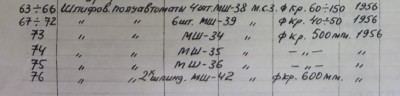 63÷66 Шлифов. полуавтоматы 4шт. МШ-38 м.с.з. ф кр. 60÷150 1956
67÷72 " " 6шт. МШ-39 " ф кр. 40÷50 1956
73 " " МШ-34 " ф кр. 500 мм. 1956
74 " " МШ-35 " –„–
75 " " МШ-36 " –„–
76 " " 2х шпинд. МШ-42 " ф кр. 600 мм. "